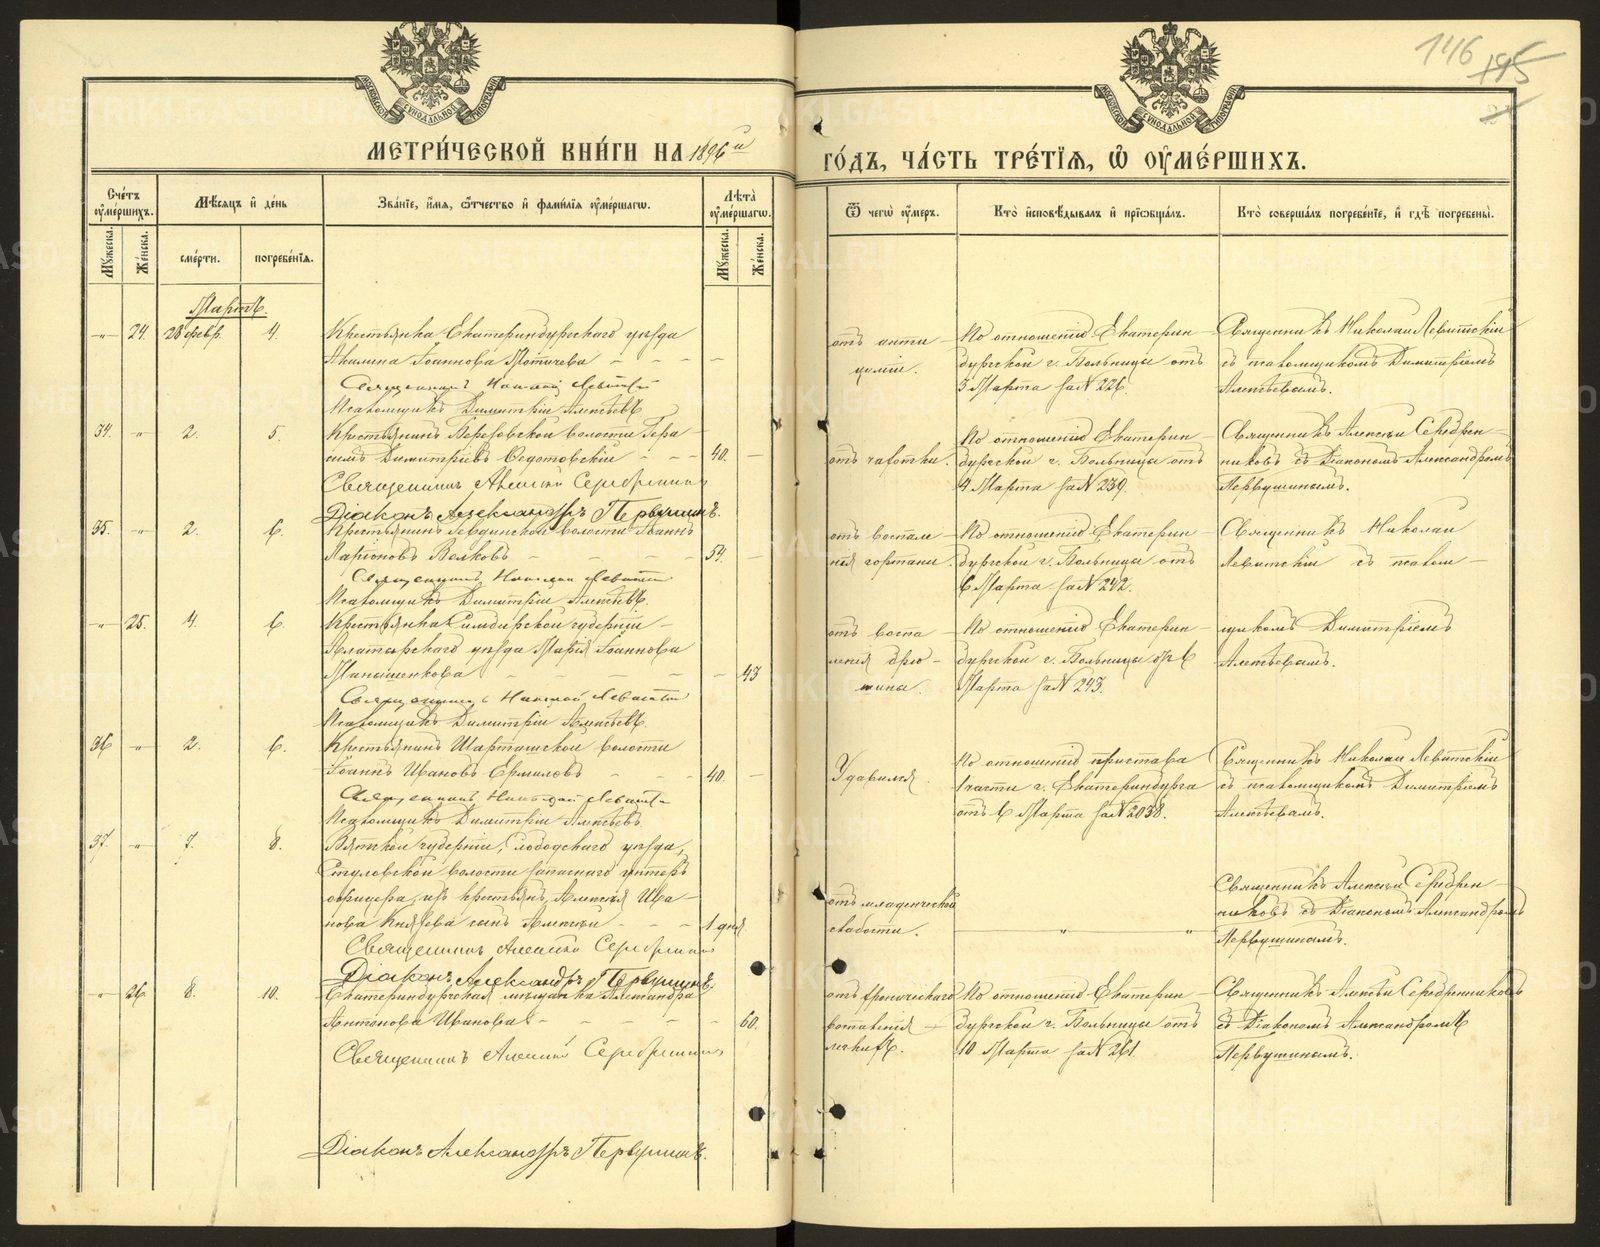 146 195
МЕТРИ́ЧЕСКОЙ КНИ́ГИ НА 1896й
ГО́ДЪ, ЧА́СТЬ ТРЕ́ТІѦ, Ѡ҆ ОУ҆МЕ́РШИХЪ.
Сче́тъ оу҆ме́ршихъ.
Мѣ́сѧцъ и҆ де́нь
Зва́нїе, и҆́мѧ, ѻ҆́тчество и҆ фамилїѧ оу҆ме́ршагѡ.
Лѣ́та оу҆ме́ршагѡ.
Ѿ чегѡ̀ оу҆́меръ.
Кто̀ и҆сповѣ́дывалъ и҆ прїѡбща́лъ.
Кто̀ соверша́лъ погребе́нїе, и҆ гдѣ̀ погребены̀.
Мꙋ́жеска.
Же́нска.
сме́рти.
погребе́нїѧ.
Мꙋ́жеска.
Же́нска.
Мартъ.
24. 28 февр. 4.
Крестьянка Екатеринбургскаго уѣзда
Акилина Іоаннова
Священникъ Николай Левитскій
Псаломщикъ Димитрій Алексѣевъ
По отношенію Екатерин-
бургской г. Больницы отъ
3 Марта за N 226.
Священникъ Николай Левитскій
съ псаломщикомъ Димитріемъ
Алексѣевымъ.
34. 2. 5.
Крестьянинъ Березовской волости Гера-
симъ Димитріевъ Федотовскій 40.
Священникъ Алексій Серебренниковъ
Діаконъ Александръ Первушинъ.
отъ чахотки.
По отношенію Екатерин-
бургской г. Больницы отъ
4 Марта за N 239.
Священникъ Алексій Серебрен-
никовъ съ Діакономъ Александромъ
Первушинымъ.
35. 2. 6.
Крестьянинъ волости Іоаннъ
Ларіоновъ Волковъ 54.
Священникъ Николай Левитскій
Псаломщикъ Димитрій Алексѣевъ.
отъ воспале-
нія гортани.
По отношенію Екатерин-
бургской г. Больницы отъ
6 Марта за N 242.
Священникъ Николай
Левитскій съ псалом-
25. 4. 6.
Крестьянка Симбирской губерніи
Алатырскаго уѣзда Марія Іоаннова
43
Священникъ Николай Левитскій
Псаломщикъ Димитрій Алексѣевъ.
отъ воспа-
ленія брю-
шины.
По отношенію Екатерин-
бургской г. Больницы отъ 6
Марта за N 243.
щикомъ Димитріемъ
Алексѣевымъ.
36 2. 6.
Крестьянинъ Шарташской волости
Іоаннъ Ивановъ Ермиловъ 40.
Священникъ Николай Левитскій
Псаломщикъ Димитрій Алексѣевъ.
По отношенію пристава
1 части г. Екатеринбурга
отъ 6 Марта за N 2038.
Священникъ Николай Левитскій
съ псаломщикомъ Димитріемъ
Алексѣевымъ.
37. 7. 8.
Вятской губерніи, Слободскаго уѣзда,
Стуловской волости запаснаго унтеръ
офицера, изъ крестьянъ, Алексія Ива-
нова Князева сынъ Алексій 1 дня
Священникъ Алексій Серебренниковъ
Діаконъ Александръ Первушинъ.
отъ младенческой
слабости.
Священникъ Алексій Серебрен-
никовъ съ Діакономъ Александромъ
Первушинымъ.
26 8. 10.
Екатеринбургская мѣщанка Александра
Антонова Иванова 60.
Священникъ Алексій Серебренниковъ
Діаконъ Александръ Первушинъ.
отъ хроническаго
воспаленія
легкихъ.
По отношенію Екатерин-
бургской г. Больницы отъ
10 Марта за N 261
Священникъ Алексій Серебренниковъ
съ Діакономъ Александромъ
Первушинымъ.